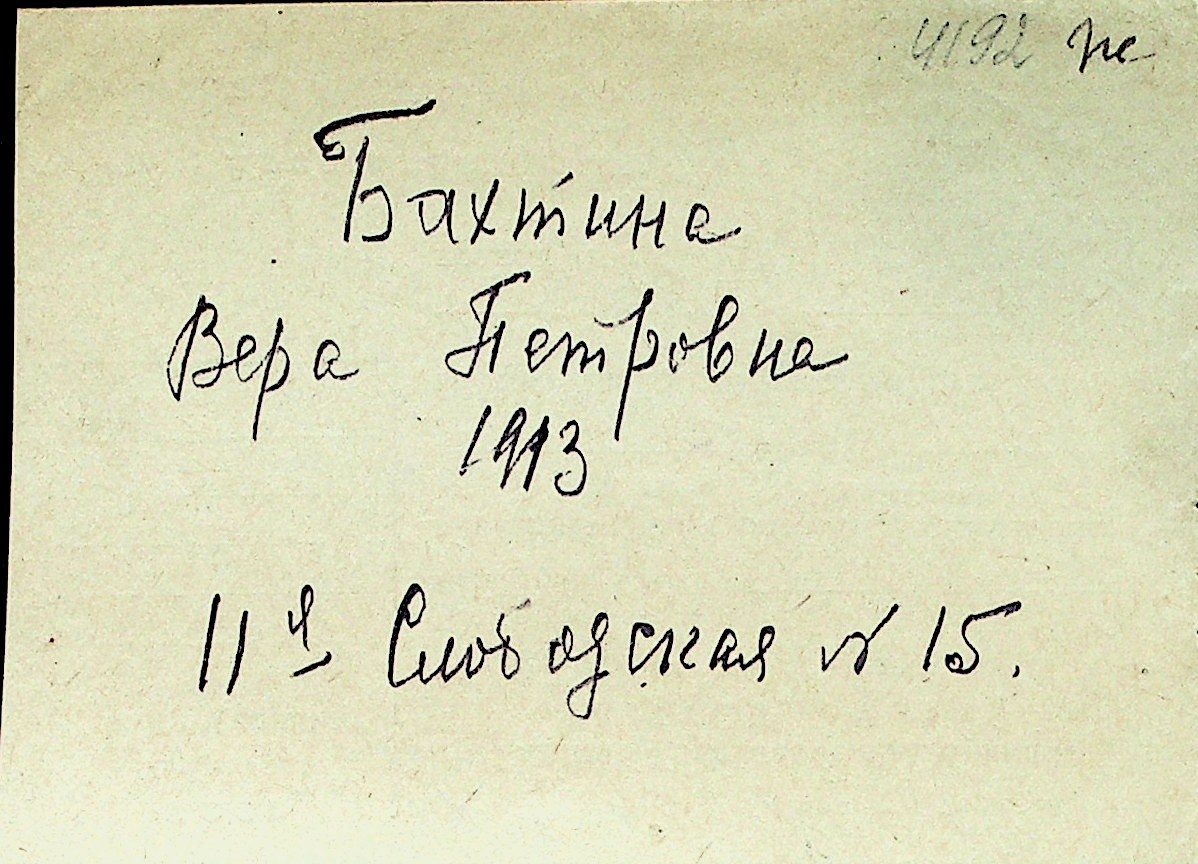 4192 не
Бахтина
Вера Петровна
1913
11я Слободская № 15.